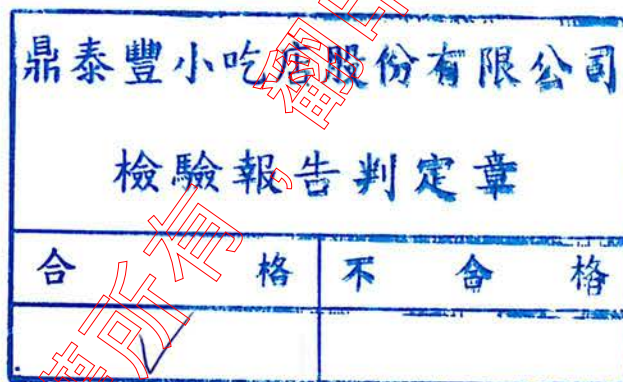 鼎泰豐小吃店股份有限公司
檢驗報告判定章
合格 不合格
所有，翻